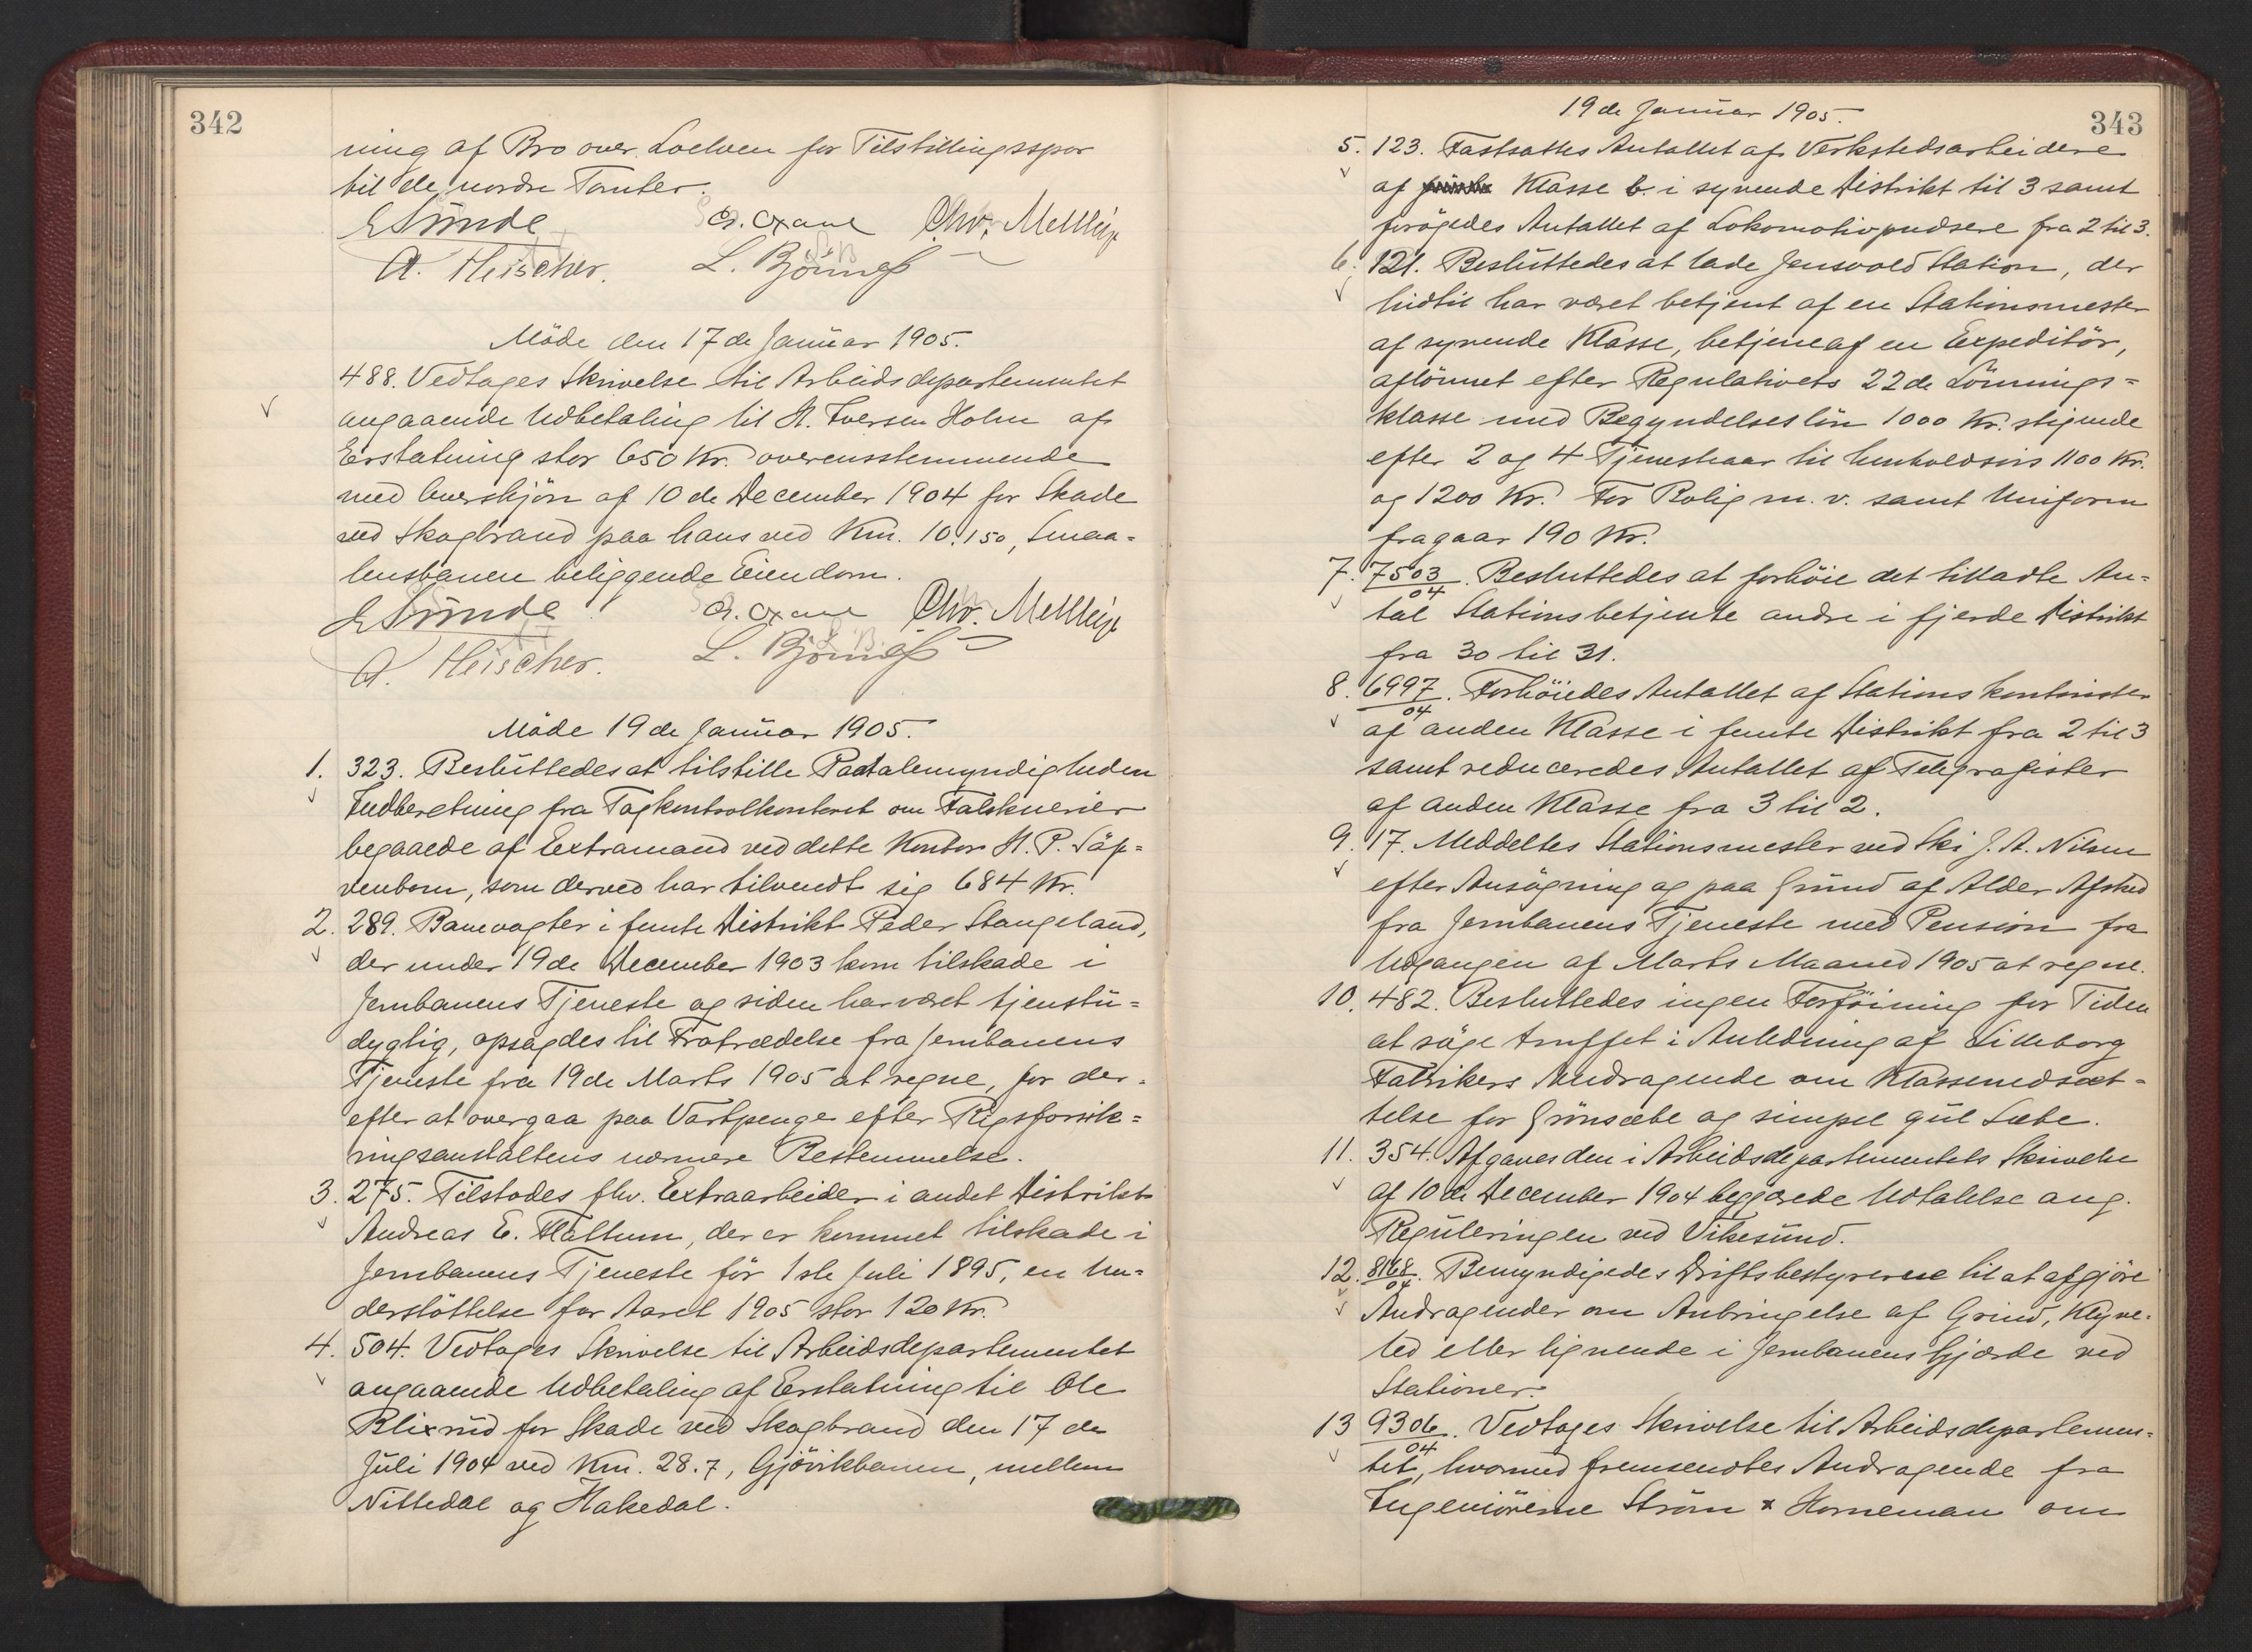 342
ning af Bro over Loelven for Tilstillingsspor
til de nordre Tomter.
E Sunde Chr. Mellbye
A. Fleischer. L. Bjørnæss
Møde den 17de Januar 1905.
488. Vedtages Skrivelse til Arbeidsdepartementet
angaaende Udbetaling til H. Iversen Holm af
Erstatning stor 650 Kr. overensstemmende
med Overskjøn af 10de December 1904 for Skade
ved Skogbrand paa hans ved Km. 10.150, Smaa-
lensbanen beliggende Eiendom.
E Sunde Chr. Mellbye
A. Fleischer. L. Bjørnæss
Møde 19de Januar 1905.
1. 323. Besluttedes at tilstille Paatalemyndigheden
Indberetning fra Togkontrolkontoret om Falsknerier
begaaede af Extramand ved dette Kontor H. P. Säf-
venbom, som derved har tilvendt sig 684 Kr.
2. 289. Banevogter i femte Distrikt Peder Stangeland,
der under 19de December 1903 kom tilskade i
Jernbanens Tjeneste og siden har været tjenstu-
dygtig, opsagdes til Fratrædelse fra Jernbanens
Tjeneste fra 19de Marts 1905 at regne, for der-
efter at overgaa paa Vartpenge efter Rigsforsik-
ringsanstaltens nærmere Bestemmelse.
3. 275. Tilstodes fhv. Extraarbeider i andet Distrikt
Andreas E. Flattum, der er kommet tilskade i
Jernbanens Tjeneste før 1ste Juli 1895, en Un-
derstøttelse for Aaret 1905 stor 120 Kr.
4. 504. Vedtages Skrivelse til Arbeidsdepartementet
angaaende Udbetaling af Erstatning til Ole
Blixrud for Skade ved Skogbrand den 17de
Juli 1904 ved Km. 28.7, Gjøvikbanen, mellem
Nittedal og Hakedal.
343
19de Januar 1905.
5. 123. Fastsattes Antallet af Verkstedsarbeidere
af Klasse b. i syvende Distrikt til 3 samt
forøgedes Antallet af Lokomotivpudsere fra 2 til 3.
6. 121. Besluttedes at lade Jensvold Station, der
hidtil har været betjent af en Stationsmester
af syvende Klasse, betjene af en Expeditør,
aflønnet efter Regulativets 22de Lønnings-
klasse med Begyndelsesløn 1000 Kr. stigende
efter 2 og 4 Tjenesteaar til henholdsvis 1100 Kr.
og 1200 Kr. For Bolig m. v. samt Uniform
fragaar 190 Kr.
7. 7503/04. Besluttedes at forhøie det tilladte An-
tal Stationsbetjente andre i fjerde Distrikt
fra 30 til 31.
8. 6997/04. Forhøiedes Antallet af Stationskontorister
af anden Klasse i femte Distrikt fra 2 til 3
samt reduceredes Antallet af Telegrafister
af anden Klasse fra 3 til 2.
9. 17. Meddeltes Stationsmester ved Ski J. A. Nilsen
efter Ansøgning og paa Grund af Alder Afsked
fra Jernbanens Tjeneste med Pension fra
Udgangen af Marts Maaned 1905 at regne.
10. 482. Besluttedes ingen Forføining for Tiden
at søge truffet i Anledning af Lilleborg
Fabrikers Andragende om Klassenedsæt-
telse for Grønsæbe og simpel gul Sæbe.
11. 354. Afgaves den i Arbeidsdepartementets Skrivelse
af 10de December 1904 begjærede Udtalelse ang.
Reguleringen ved Vikesund.
12. 8168/04. Bemyndigedes Driftsbestyrerne til at afgjøre
Andragender om Anbringelse af Grind, Klyve-
led eller lignende i Jernbanens Gjærde ved
Stationer.
13 9306/04. Vedtages Skrivelse til Arbeidsdepartemen-
tet, hvormed fremsendtes Andragende fra
Ingeniørerne Strøm & Horneman om